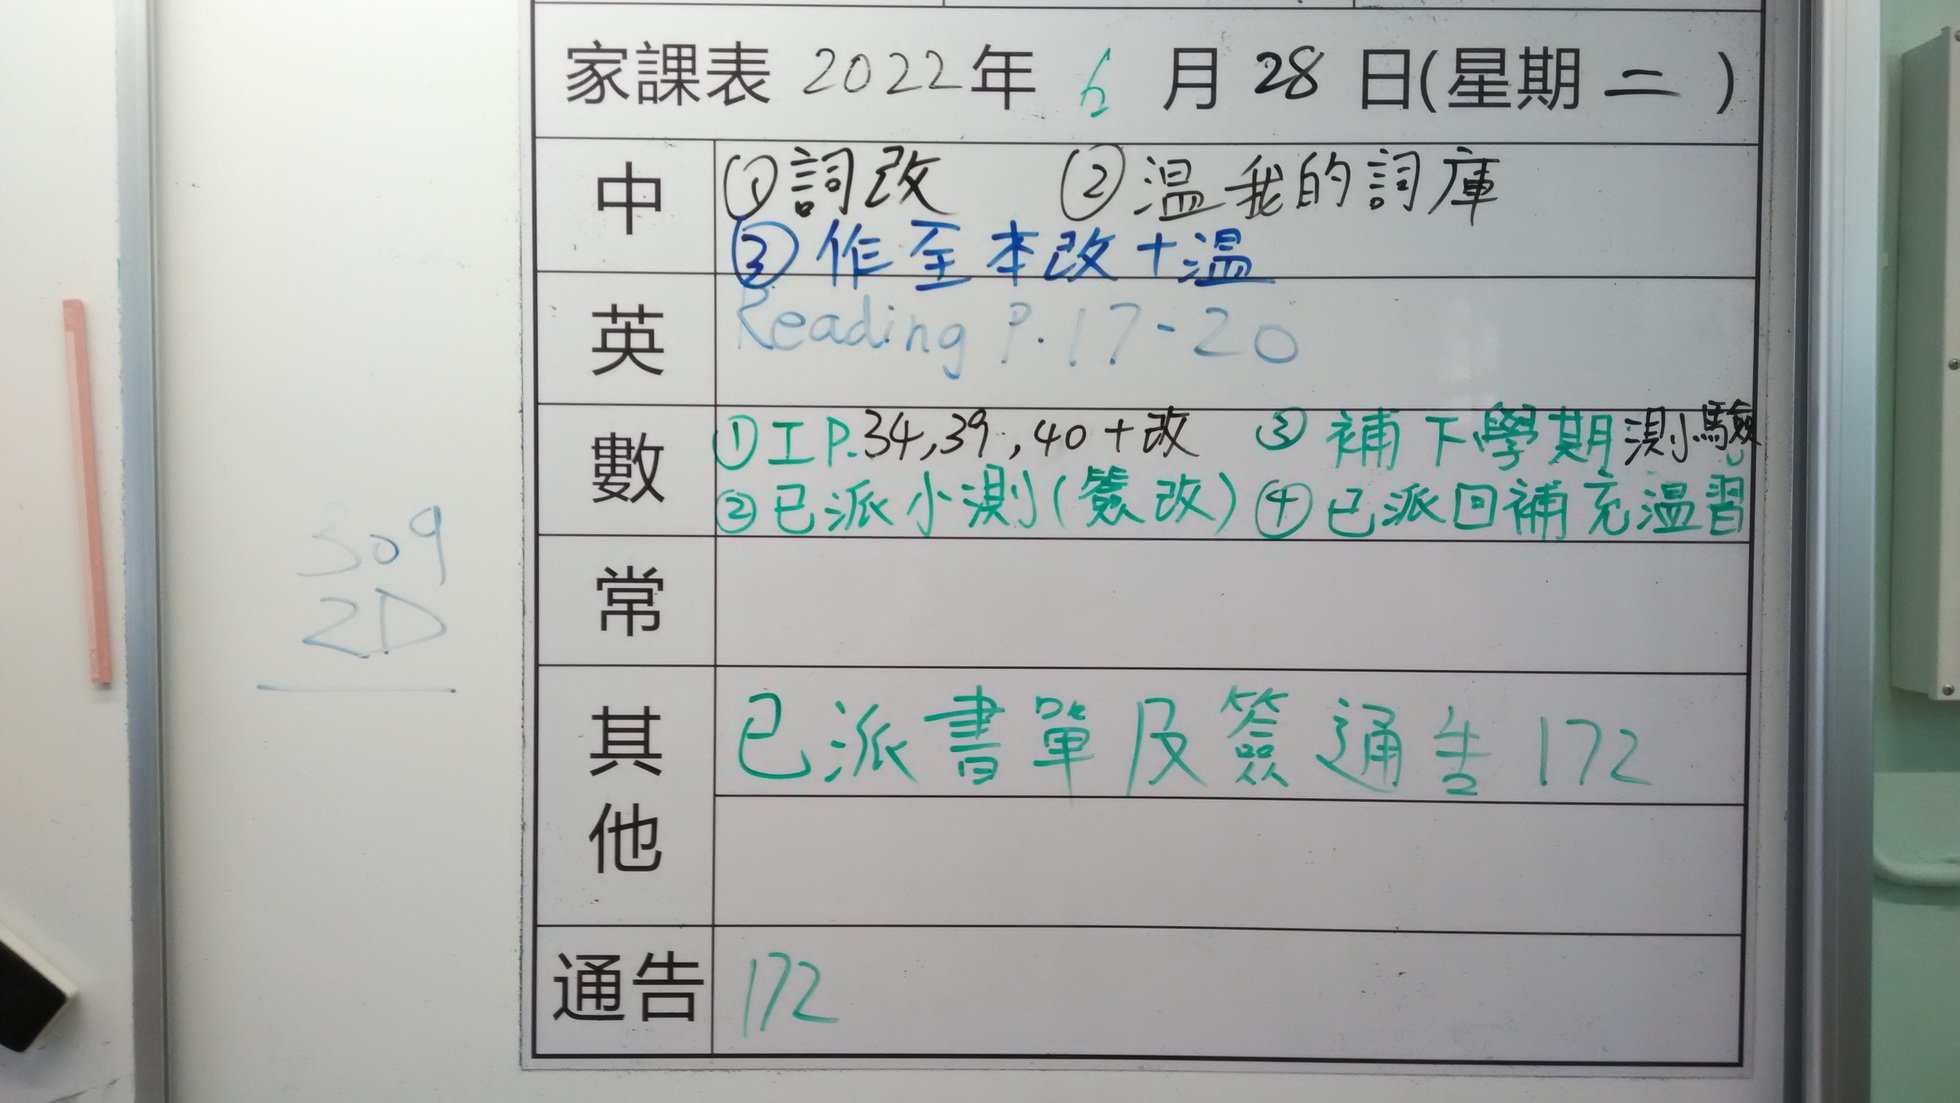 家課表 2022年 6月 28日(星期二)
中 ①詞改 ②温我的詞庫
③作全本改+温
英 Reading P.17-20
數 ①工P.34,39,40+改 ③補下學期測驗
②已派小測(簽改) ④已派回補充温習
常
其他 已派書單及簽通告172
通告 172
309
2D